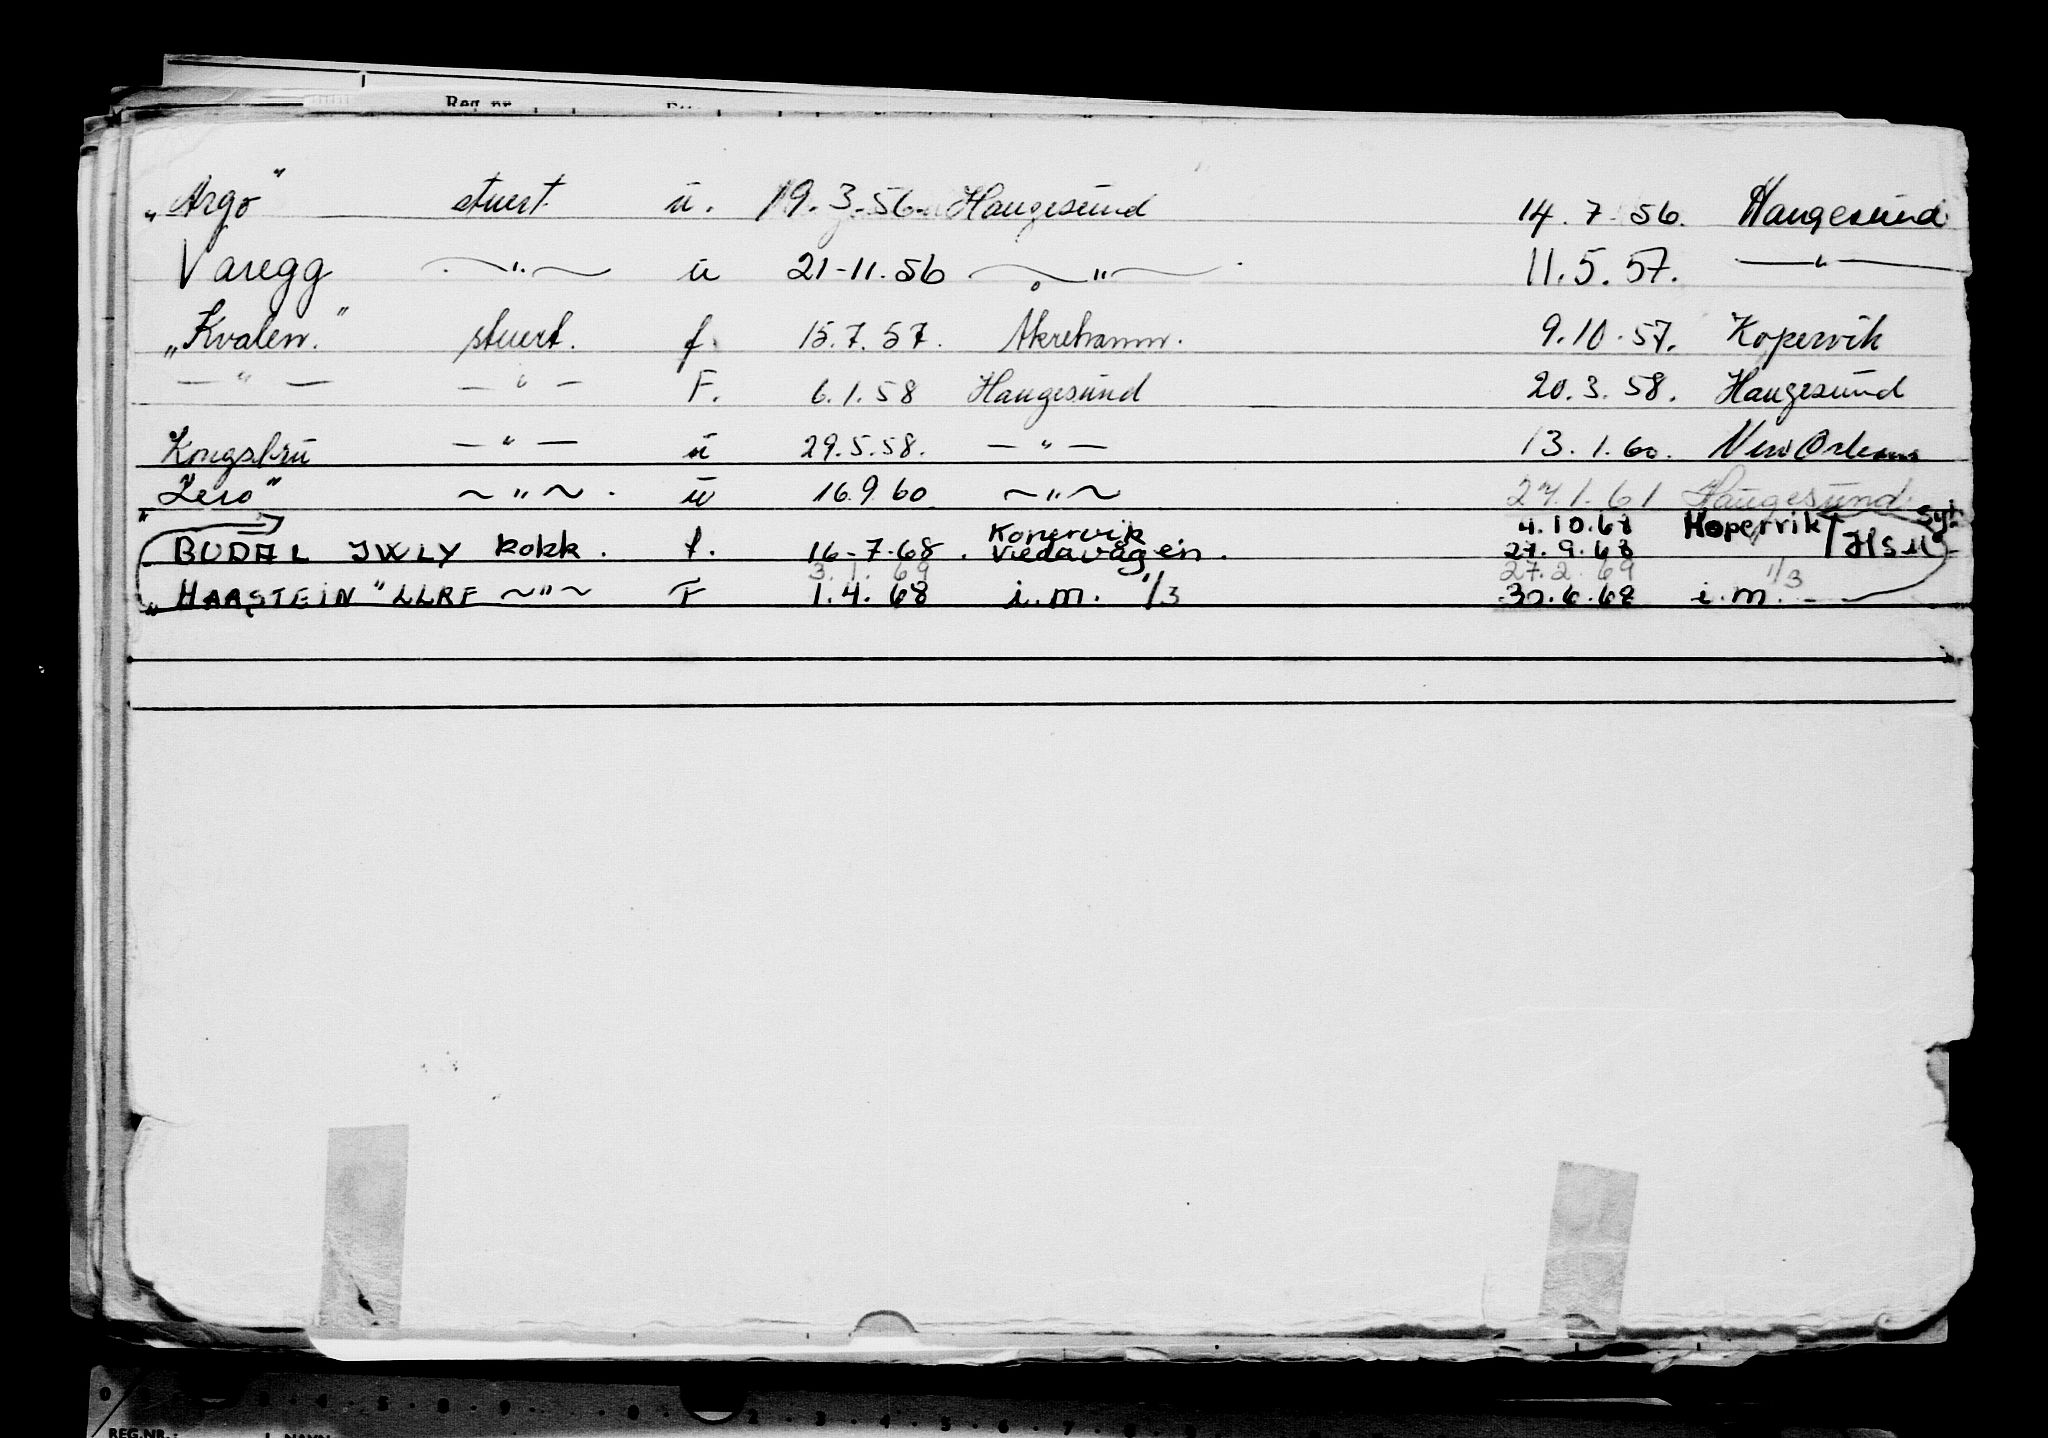 Reg. nr.
„Argo" stuert. u. 19.3.56. Haugesund 14.7.56. Haugesund
Varegg —"— u 21-11.56 —"— 11.5.57. —"—
„Kvalen." stuert. f. 15.7.57. Åkrehamn. 9.10.57. Kopervik
—"— —"— F. 6.1.58 Haugesund 20.3.58. Haugesund
Kongsbru —"— u 29.5.58. —"— 13.1.60. New Orleans
„Zero" ~"~. u 16.9.60 ~"~ 27.1.61 Haugesund
Kopervik 4.10.68 Kopervik
BUDAL JWLY kokk. f. 16-7-68. Vedavågen. 27.9.68 "
3.1.69 27.2.69 1/3
„HAASTEIN" LLRF ~"~ F 1.4.68 i.m. 1/3 30.6.68 i.m.
REG.NR.: 1. NAVN